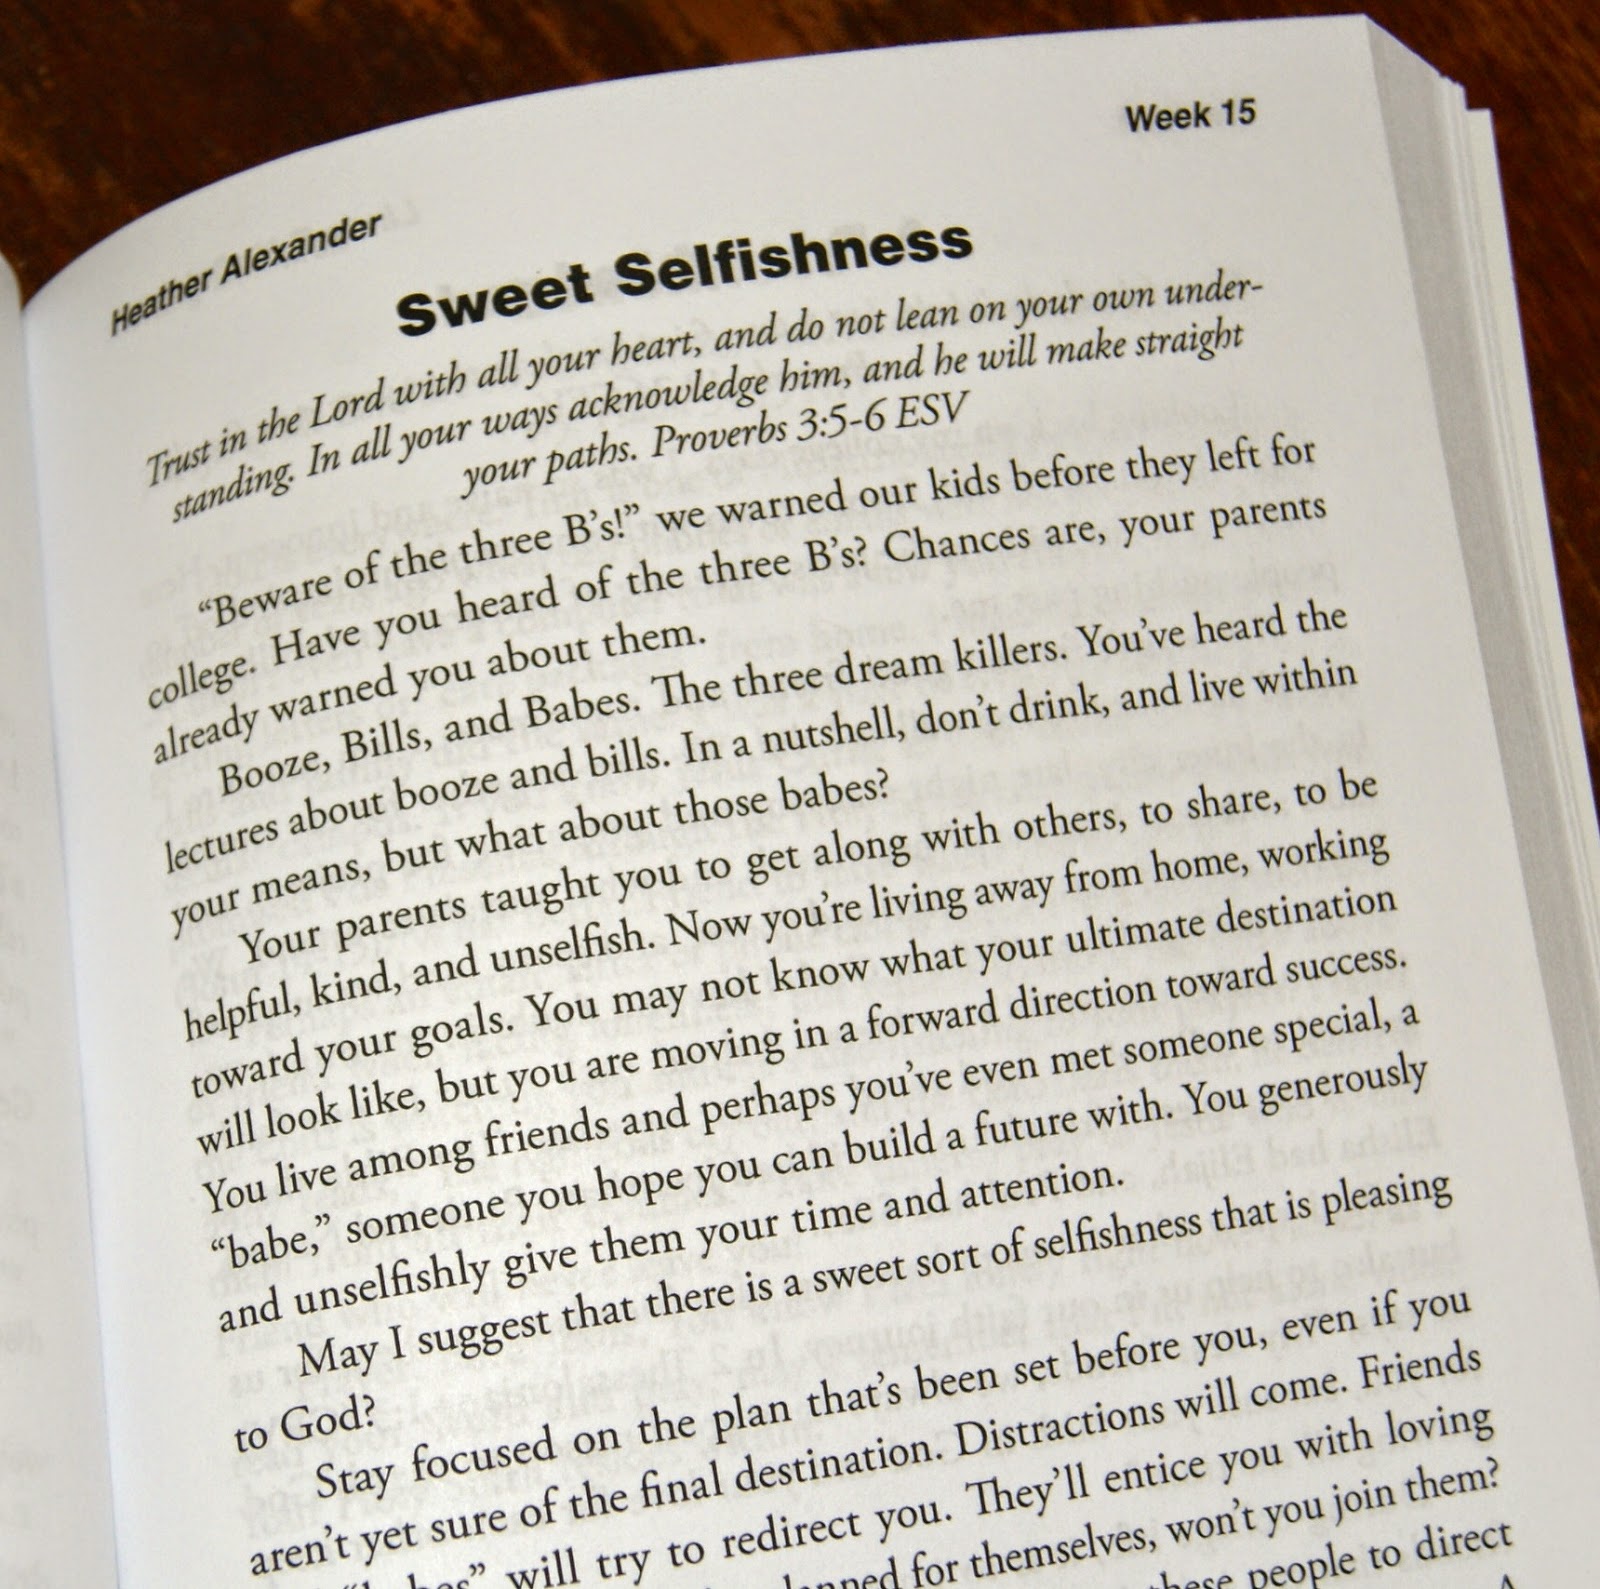 Week 15
Heather Alexander
Sweet Selfishness
Trust in the Lord with all your heart, and do not lean on your own under-
standing. In all your ways acknowledge him, and he will make straight
your paths. Proverbs 3:5-6 ESV
“Beware of the three B’s!” we warned our kids before they left for
college. Have you heard of the three B’s? Chances are, your parents
already warned you about them.
Booze, Bills, and Babes. The three dream killers. You’ve heard the
lectures about booze and bills. In a nutshell, don’t drink, and live within
your means, but what about those babes?
Your parents taught you to get along with others, to share, to be
helpful, kind, and unselfish. Now you’re living away from home, working
toward your goals. You may not know what your ultimate destination
will look like, but you are moving in a forward direction toward success.
You live among friends and perhaps you’ve even met someone special, a
“babe,” someone you hope you can build a future with. You generously
and unselfishly give them your time and attention.
May I suggest that there is a sweet sort of selfishness that is pleasing
to God?
Stay focused on the plan that’s been set before you, even if you
aren’t yet sure of the final destination. Distractions will come. Friends
will try to redirect you. They’ll entice you with loving
for themselves, won’t you join them?
people to direct